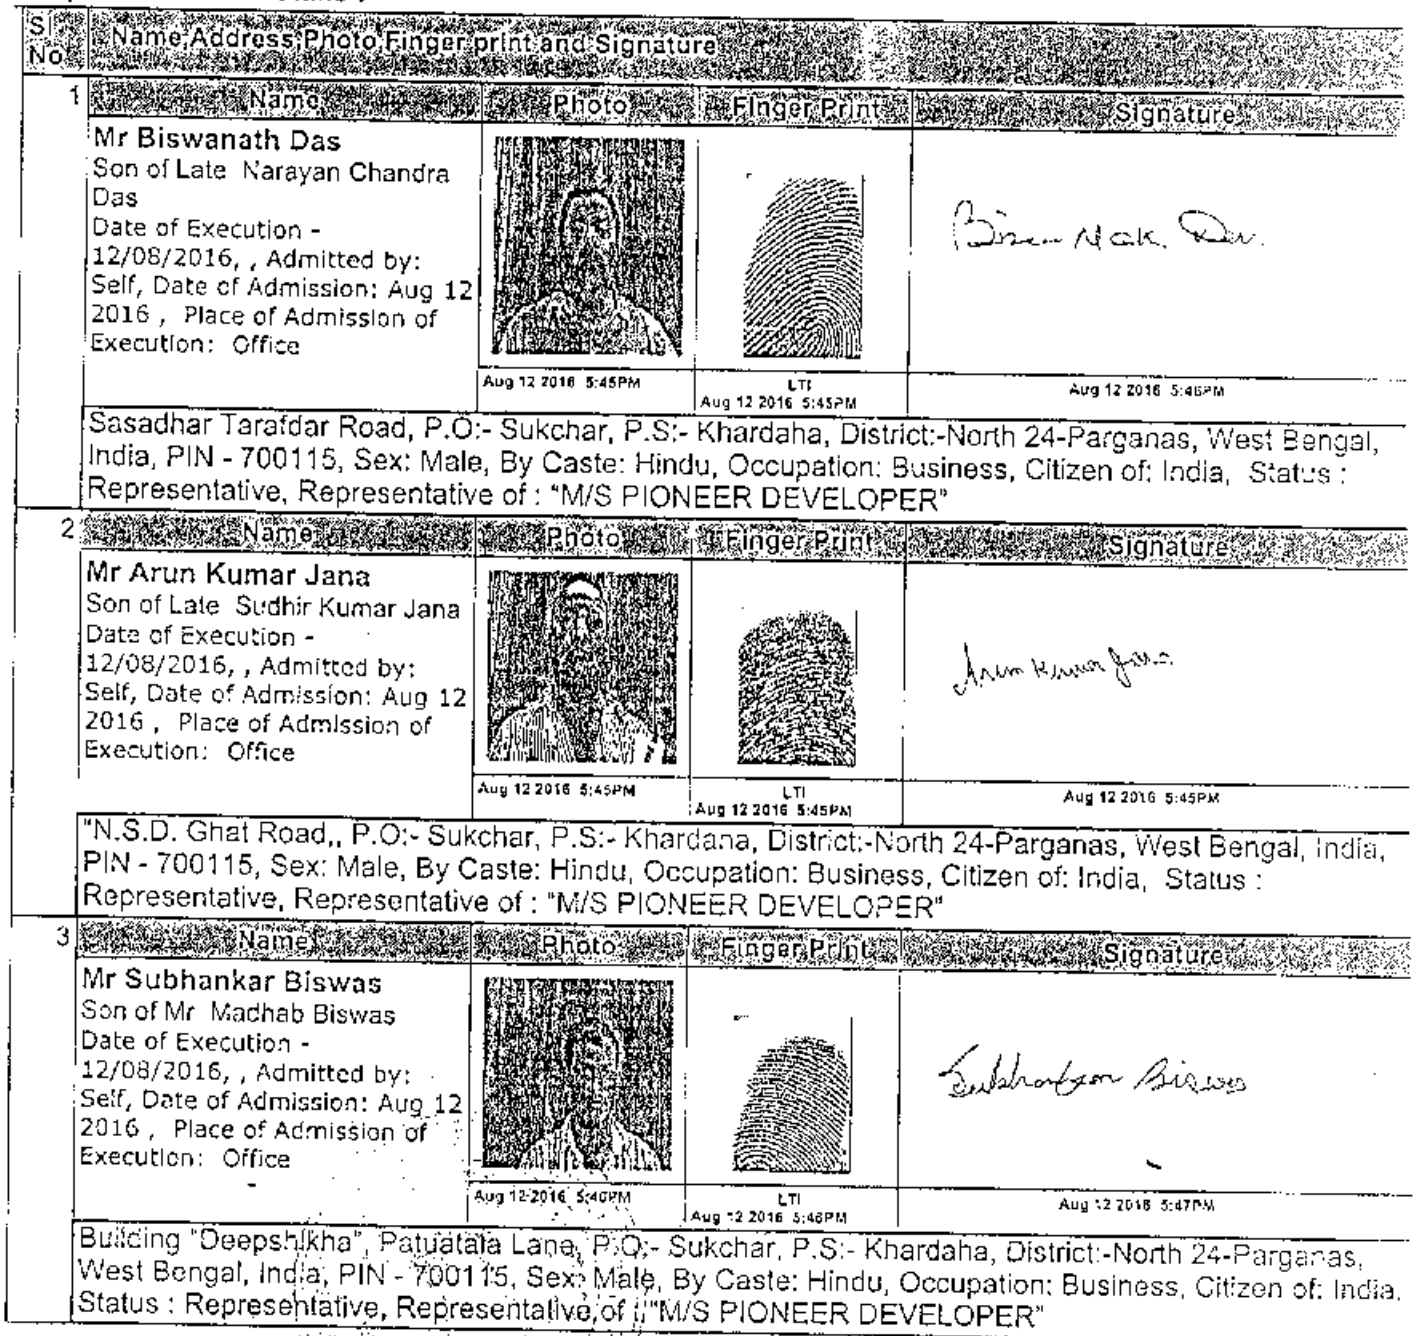 Sl No
Name,Address,Photo,Finger print and Signature
1
Name
Photo
Finger Print
Signature
Mr Biswanath Das
Son of Late Narayan Chandra
Das
Date of Execution -
12/08/2016, , Admitted by:
Self, Date of Admission: Aug 12
2016 , Place of Admission of
Execution: Office
Aug 12 2016 5:45PM
LTI
Aug 12 2016 5:45PM
Aug 12 2016 5:46PM
Sasadhar Tarafdar Road, P.O:- Sukchar, P.S:- Khardaha, District:-North 24-Parganas, West Bengal,
India, PIN - 700115, Sex: Male, By Caste: Hindu, Occupation: Business, Citizen of: India, Status :
Representative, Representative of : "M/S PIONEER DEVELOPER"
2
Name
Photo
Finger Print
Signature
Mr Arun Kumar Jana
Son of Late Sudhir Kumar Jana
Date of Execution -
12/08/2016, , Admitted by:
Self, Date of Admission: Aug 12
2016 , Place of Admission of
Execution: Office
Arun Kumar Jana
Aug 12 2016 5:45PM
LTI
Aug 12 2016 5:45PM
Aug 12 2016 5:45PM
"N.S.D. Ghat Road,, P.O:- Sukchar, P.S:- Khardana, District:-North 24-Parganas, West Bengal, India,
PIN - 700115, Sex: Male, By Caste: Hindu, Occupation: Business, Citizen of: India, Status :
Representative, Representative of : "M/S PIONEER DEVELOPER"
3
Name
Photo
Finger Print
Signature
Mr Subhankar Biswas
Son of Mr Madhab Biswas
Date of Execution -
12/08/2016, , Admitted by:
Self, Date of Admission: Aug 12
2016 , Place of Admission of
Execution: Office
Subhankar Biswas
Aug 12 2016 5:46PM
LTI
Aug 12 2016 5:46PM
Aug 12 2016 5:47PM
Building "Deepshikha", Patuatala Lane, P.O:- Sukchar, P.S:- Khardaha, District:-North 24-Parganas,
West Bengal, India, PIN - 700115, Sex: Male, By Caste: Hindu, Occupation: Business, Citizen of: India,
Status : Representative, Representative of : "M/S PIONEER DEVELOPER"